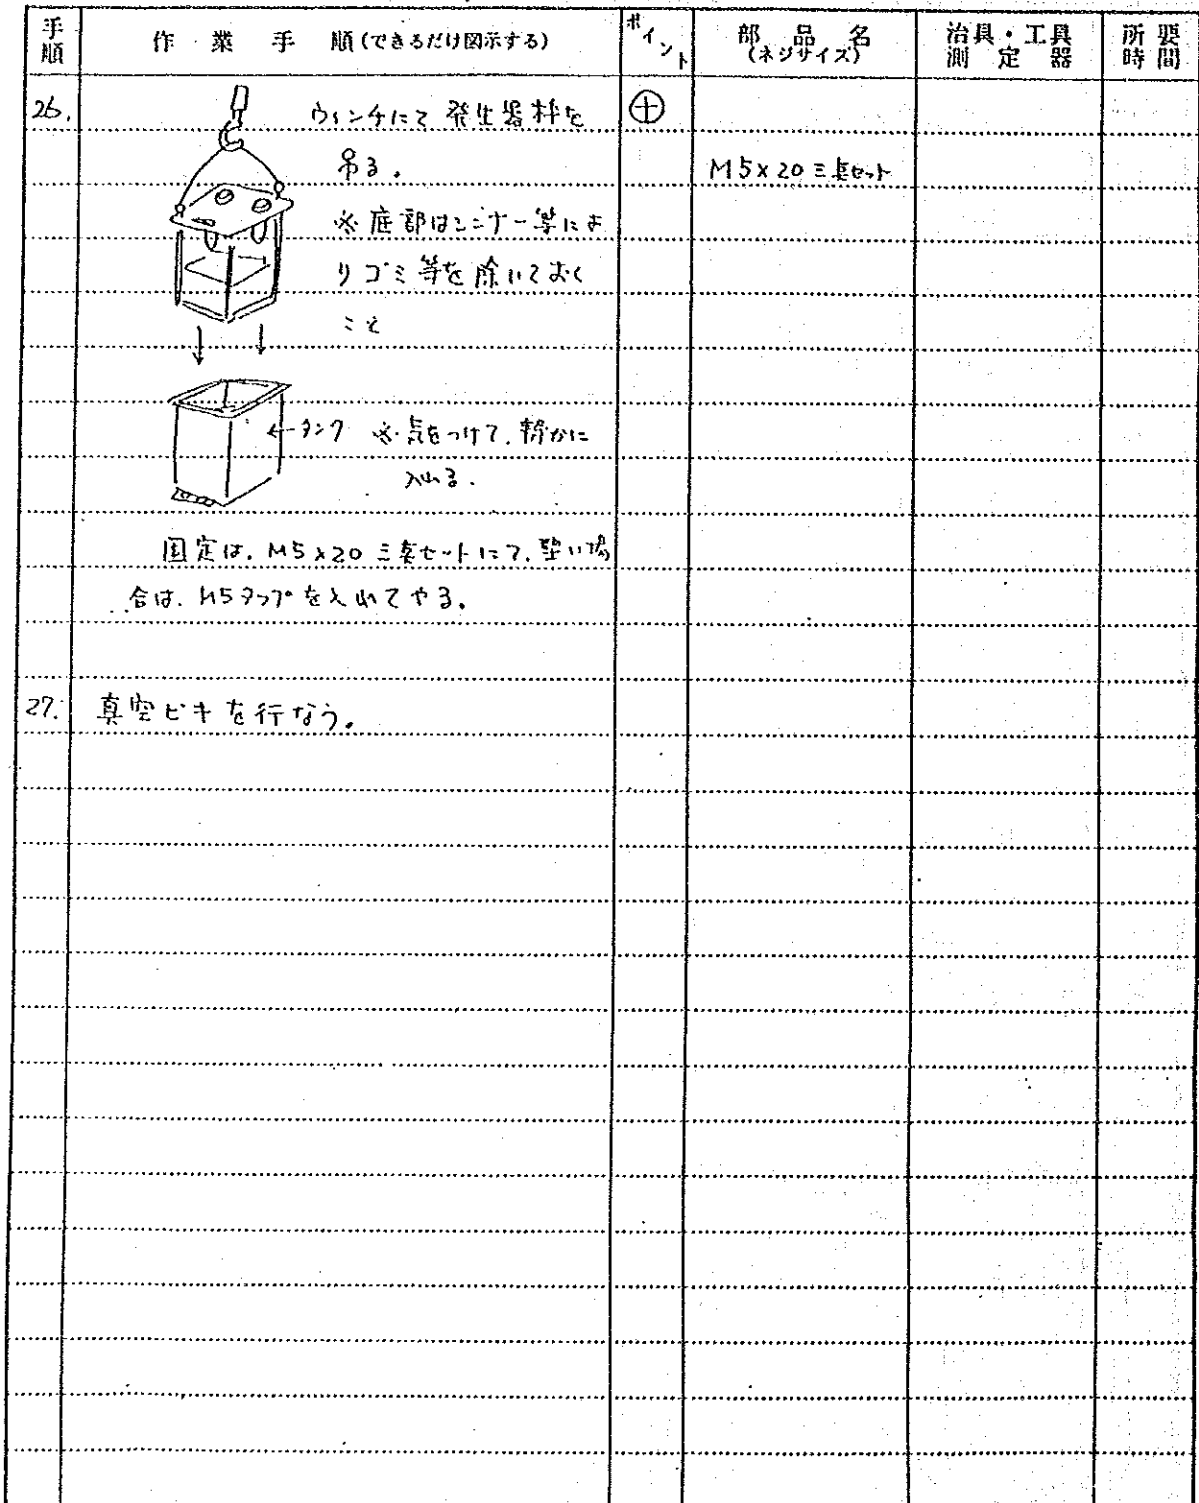 手順 作業手順(できるだけ図示する) ポイント 部品名(ネジサイズ) 治具・工具測定器 所要時間
26. ウィンチにて発生器枠を
吊る。
M5×20 三点セット
※底部はシンナー等によ
りゴミ等を除いておく
こと
←タンク ※気をつけて、静かに
入れる。
固定は、M5×20 三点セットにて、堅い場
合は、M5タップを入れてやる。
27. 真空ビキを行なう。